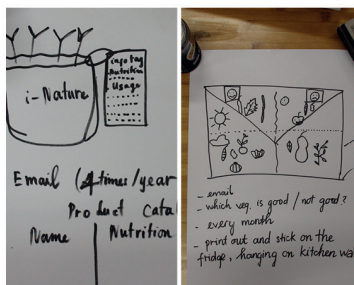 info tag
Nutrition
Usage
i-Nature
Email (4 times/year
Product Cata
Name
Nutrition
- email
- which veg. is good / not good?
- every month
- print out and stick on the
fridge, hanging on kitchen wa